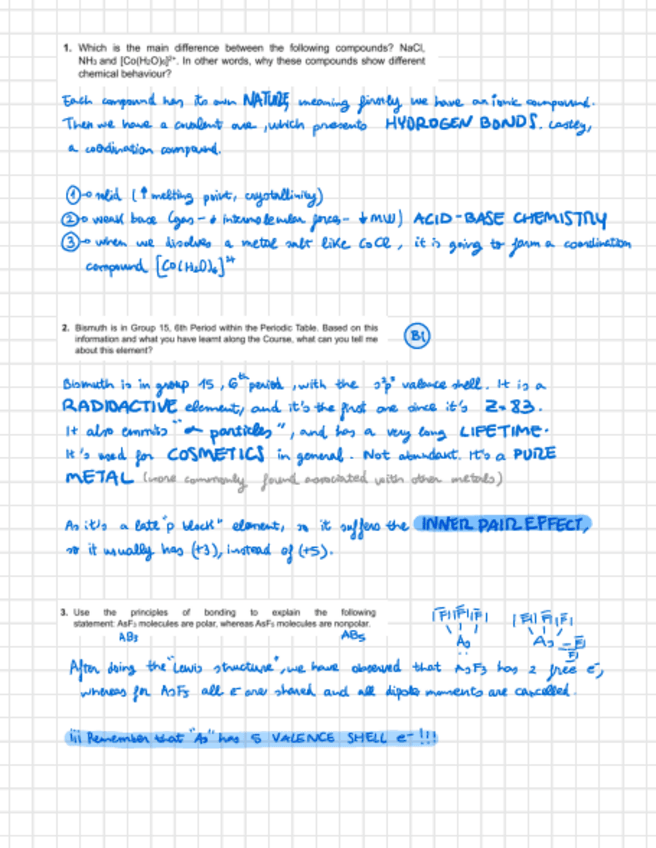 1. Which is the main difference between the following compounds? NaCl,
NH₃ and [Co(H₂O)₆]²⁺. In other words, why these compounds show different
chemical behaviour?
Each compound has its own NATURE, meaning firstly we have an ionic compound.
Then we have a covalent one, which presents HYDROGEN BONDS. Lastly,
a coordination compound.
① → solid (↑ melting point, crystallinity)
② → weak base (gas - ↓ intermolecular forces - ↓ MW) ACID-BASE CHEMISTRY
③ → when we disolves a metal salt like CoCl, it is going to form a coordination
compound [Co(H₂O)₆]²⁺
2. Bismuth is in Group 15, 6th Period within the Periodic Table. Based on this
information and what you have learnt along the Course, what can you tell me
about this element?
Bi
Bismuth is in group 15, 6th period, with the s²p³ valence shell. It is a
RADIOACTIVE element, and it's the first one since it's Z=83.
It also emmits "α particles", and has a very long LIFETIME.
It's used for COSMETICS in general. Not abundant. It's a PURE
METAL (more commonly found associated with other metals)
As it's a late "p block" element, so it suffers the INNER PAIR EFFECT,
so it usually has (+3), instead of (+5).
3. Use the principles of bonding to explain the following
statement: AsF₃ molecules are polar, whereas AsF₅ molecules are nonpolar.
AB₃ AB₅
|F| |F| |F| |F| |F| |F|
As As F
F
After doing the "Lewis structure", we have observed that AsF₃ has 2 free e⁻,
whereas for AsF₅ all e⁻ are shared and all dipole moments are cancelled.
¡¡¡ Remember that "As" has 5 VALENCE SHELL e⁻ !!!